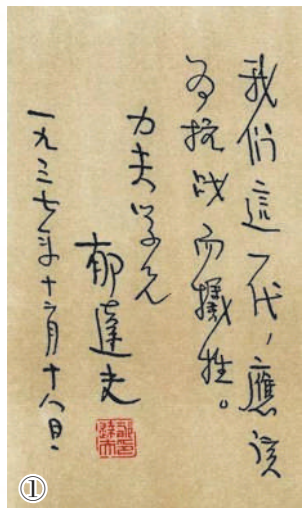 我们這一代，應该
为抗战而犧牲。
力夫学兄
郁達夫
一九三七年十二月十八日
①